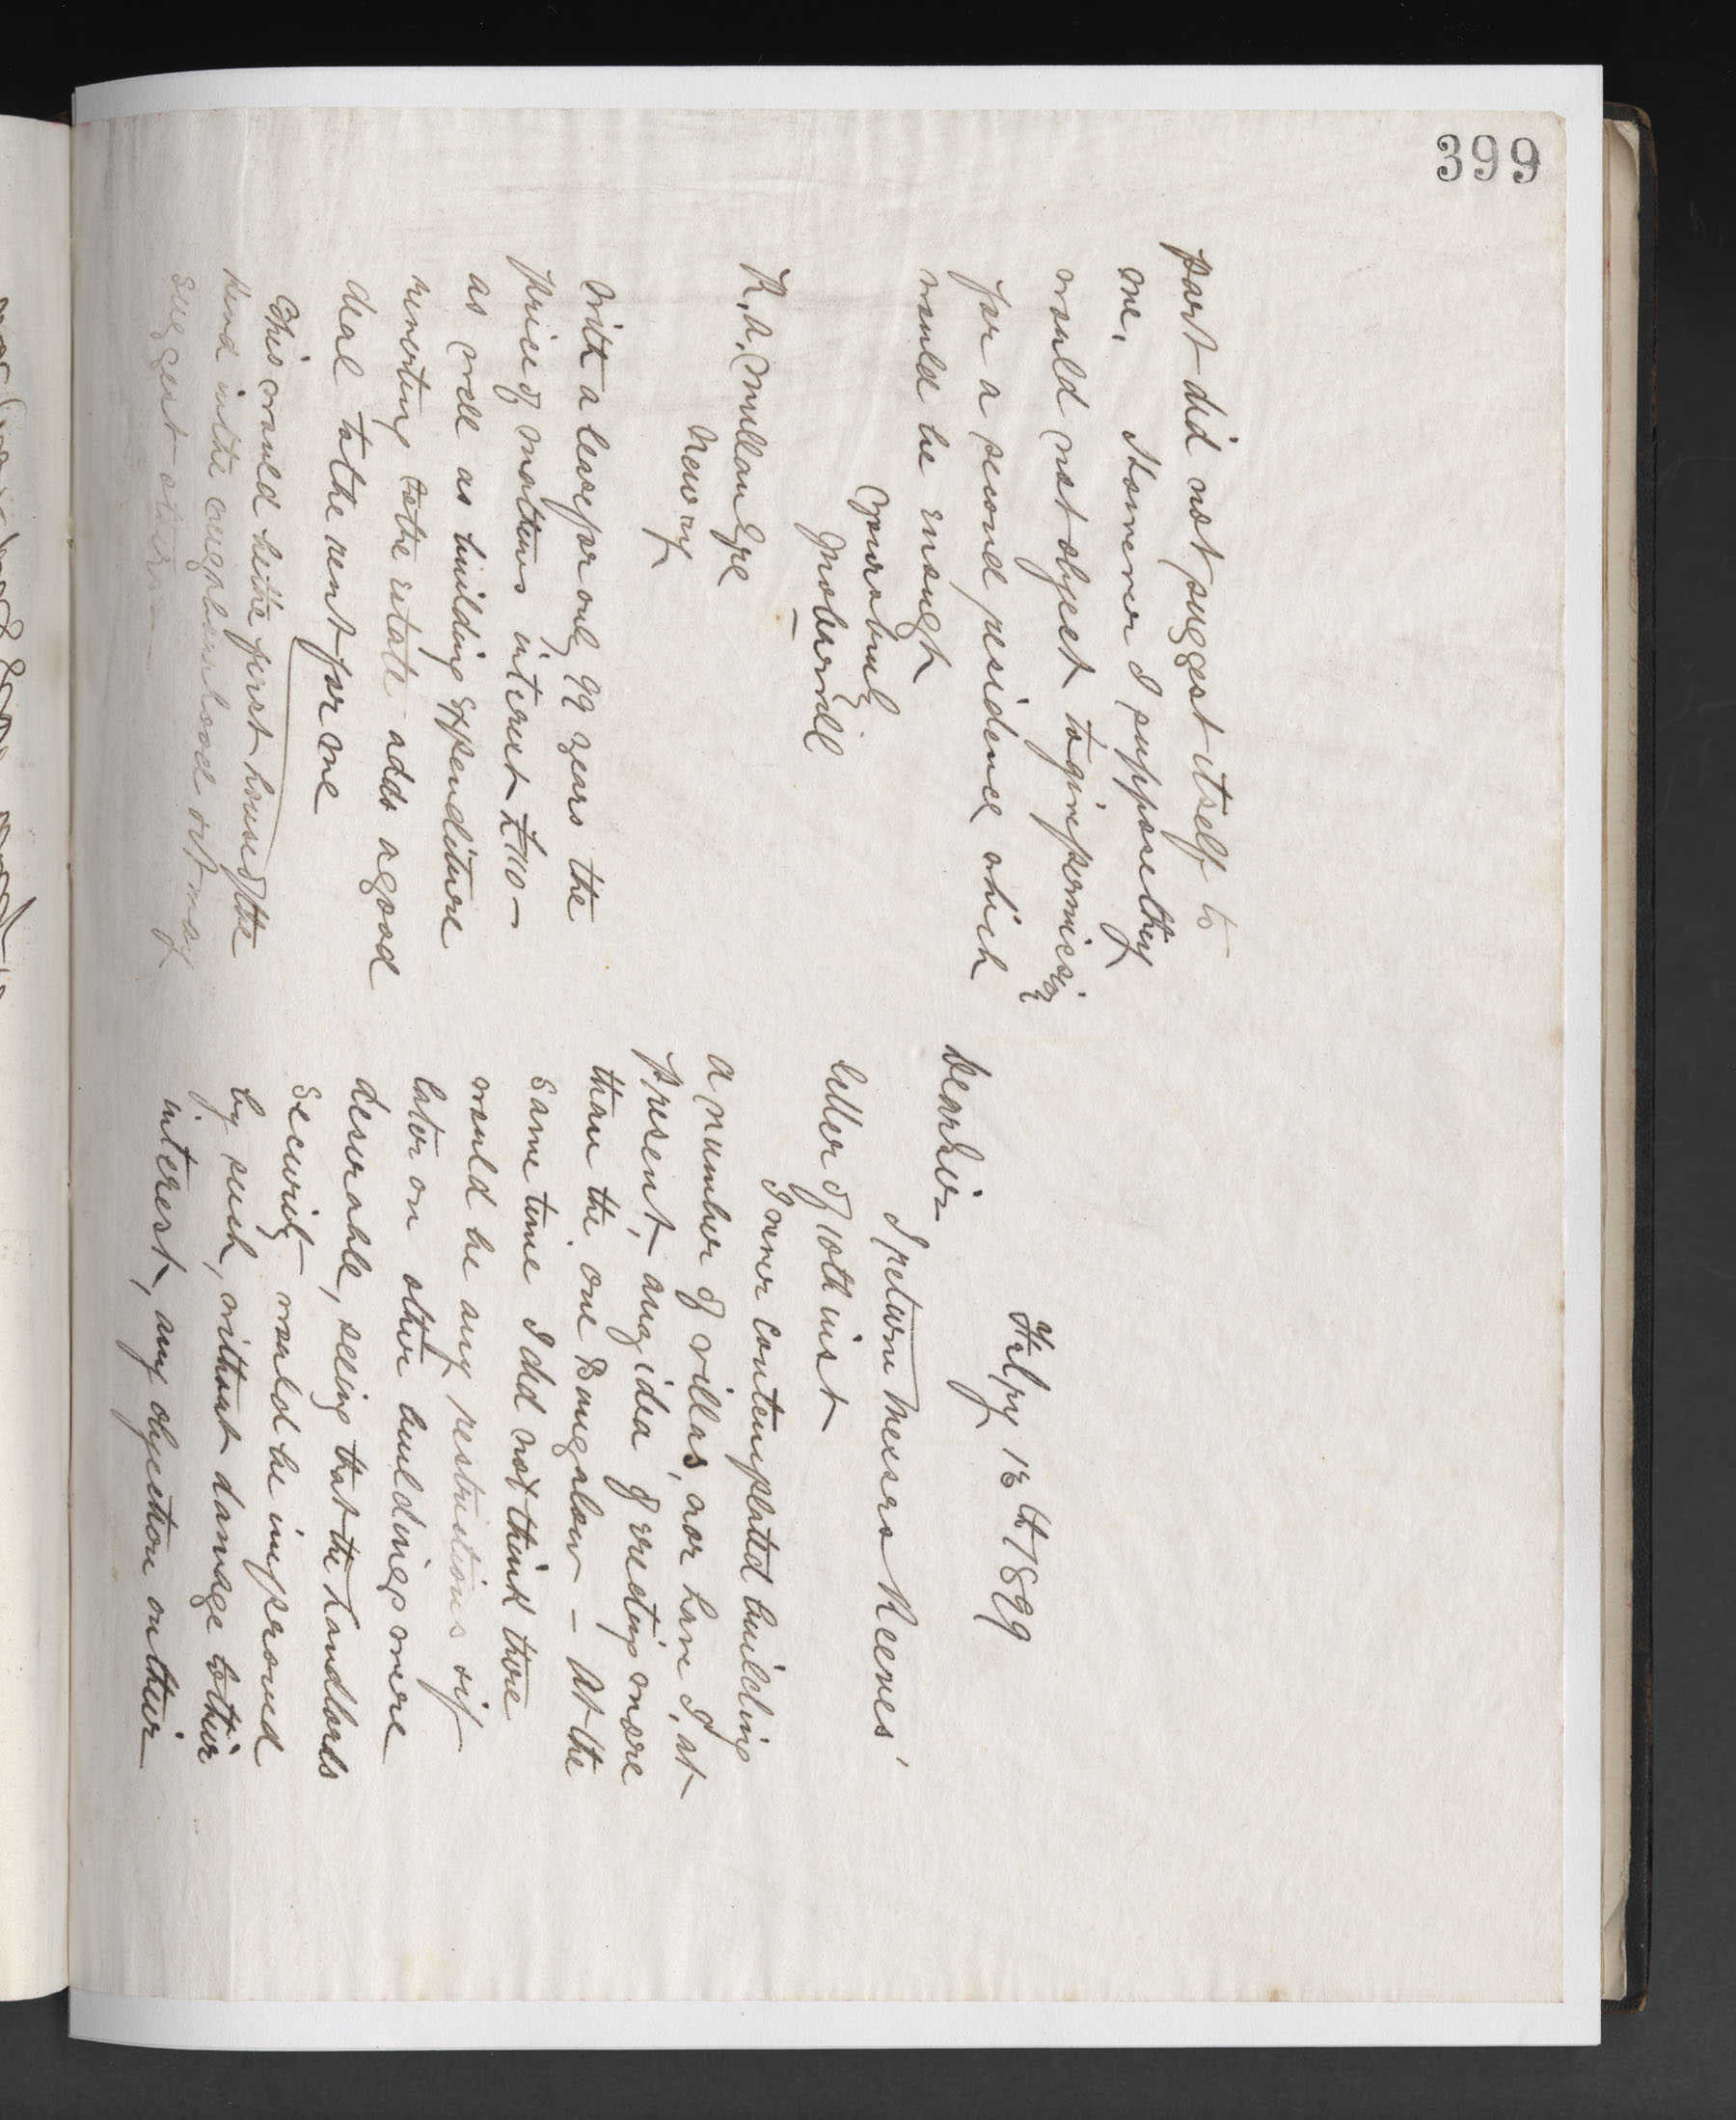 399
Feby 13th 1899
Dear Sir
I return Messrs Reeves'
letter of 10th inst
I never contemplated building
a number of villas, nor have I, at
present, any idea of erecting more
than the one Bungalow – At the
same time I did not think there
would be any restrictions if
later on other buildings were
desirable, seeing that the Landlords
security would be improved
by such, without damage to their
interest, any objection on their
part did not suggest itself to
me. However I suppose they
would not object to give permission
for a second residence which
would be enough
Yours truly
R. A. Mullan Esqe
Newry
With a lease for only 99 years the
price of Mathews interest £110 –
as well as building expenditure
reverting to the estate adds a good
deal to the rent for me
This would be the first house of the
kind in the neighbourhood & it may
suggest others –